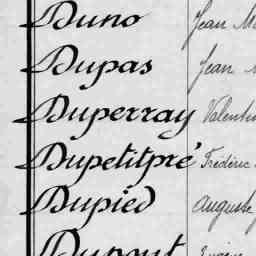 Duno Jean
Dupas Jean
Duperray Valentin
Dupetitpré Frédéric
Dupied Auguste
Dupont